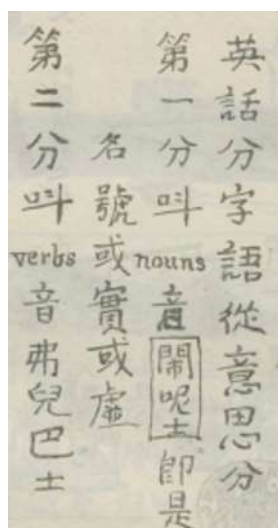 英話分字語從意思分
第一分呌nouns音鬧呢士即是
名號或實或虛
第二分呌verbs音弗兒巴士